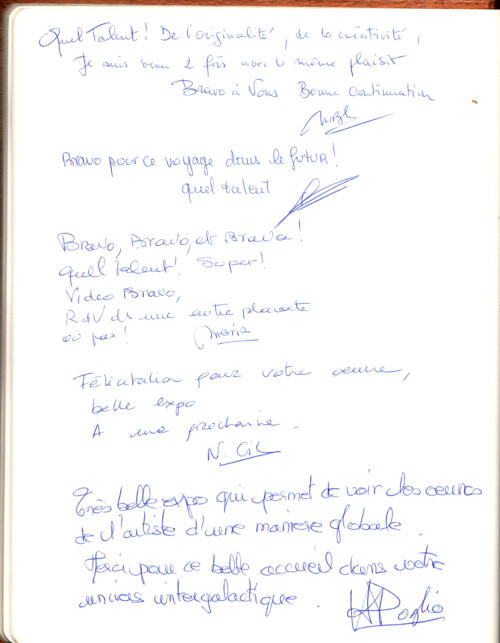 Quel Talent! De l'originalité, de la créativité,
Je suis venu 2 fois avec le même plaisir
Bravo à Vous Bonne Continuation
Bravo pour ce voyage dans le futur!
quel talent
Bravo, Bravo, et Bravo!
quel talent! Super!
Video Bravo,
RdV ds une autre planante
ou pas!
Maria
Félicitation pour votre oeuvre,
belle expo
A une prochaine.
N. Gil
Très belle expo qui permet de voir les oeuvres
de l'artiste d'une maniere globale.
Merci pour ce belle accueil dans votre
univers intergalactique.